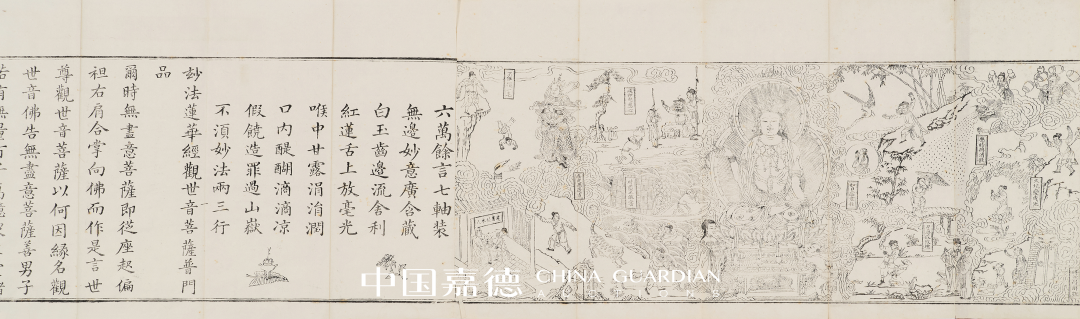 六萬餘言七軸装
無邊妙意廣含藏
白玉齒邊流舍利
紅蓮舌上放毫光
喉中甘露涓涓潤
口内醍醐滴滴凉
假饒造罪過山嶽
不湏妙法兩三行
玅法蓮華經觀世音菩薩普門
品
爾時無盡意菩薩即從座起偏
袒右肩合掌向佛而作是言世
尊觀世音菩薩以何因緣名觀
世音佛告無盡意菩薩善男子
中国嘉德 CHINA GUARDIAN